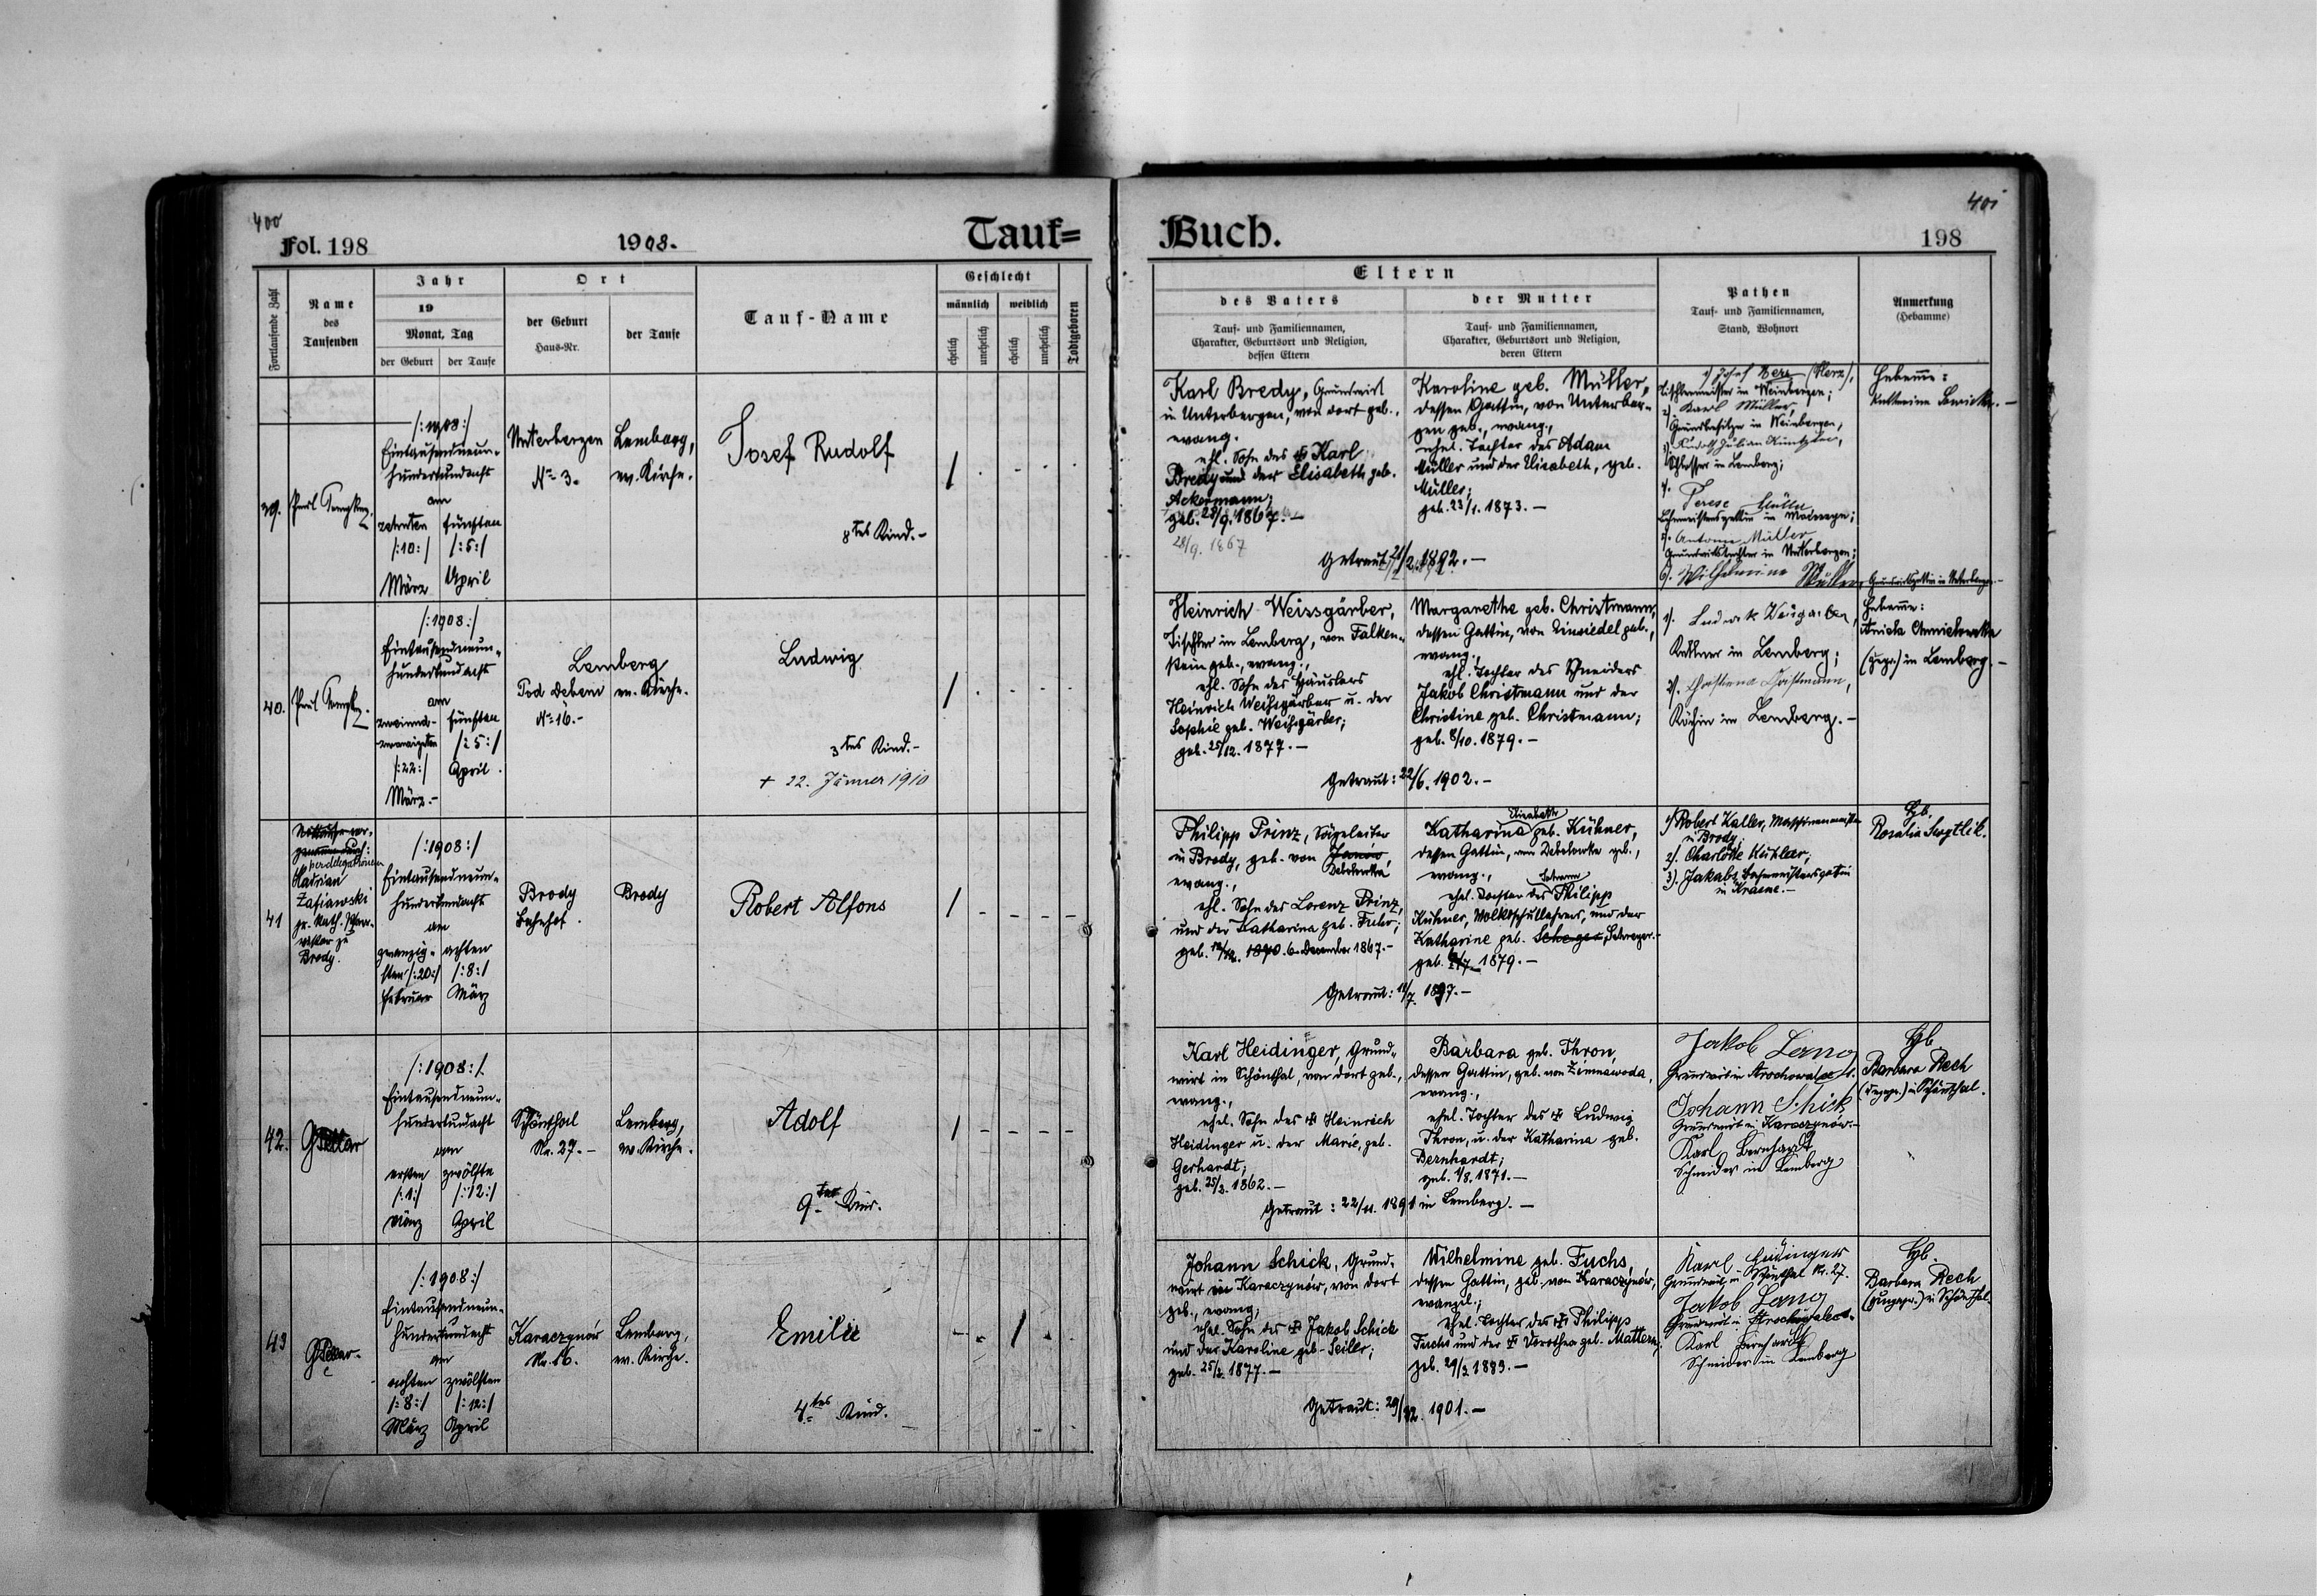 400
Fol. 198
1908.
Tauf=
Fortlaufende Zahl
Name
des
Taufenden
Jahr
19
Monat, Tag
der Geburt
der Taufe
Ort
der Geburt
Haus-Nr.
der Taufe
Tauf-Name
Geschlecht
männlich
weiblich
ehelich
unehelich
ehelich
unehelich
Todtgeboren
39.
/:1908:/
Eintausendneun-
hundertundacht
am
zehnten
/:10:/
März
fünften
/:5:/
April
Unterbergen
No 3.
Lemberg,
ev. Kirche.
Josef Rudolf
8tes Kind.-
40.
/:1908:/
Eintausendneun-
hundertundacht
am
zweiund-
zwanzigsten
/:22:/
März.-
fünften
/:5:/
April.
Lemberg
Pod Debem
No 16.-
ev. Kirche.
Ludwig
3tes Kind.-
+ 22. Jänner 1910
41
per delegationem
Hadrian
Zafiawski
gr.-kath. Pfarr-
zu
Brody.
/:1908:/
Eintausendneun-
hundertundacht
am
zwanzig-
sten /:20:/
Februar
achten
/:8:/
März
Brody
Bahnhof.
Brody
Robert Alfons
42.
/:1908:/
Eintausendneun-
hundertundacht
am
ersten
/:1:/
März
zwölften
/:12:/
April
Schönthal
Nr. 27.-
Lemberg,
ev. Kirche.
Adolf
9tes Kind.
43
/:1908:/
Eintausendneun-
hundertundacht
am
achten
/:8:/
März
zwölften
/:12:/
April
Karaczynów
Nr. 16.
Lemberg,
ev. Kirche.
Emilie
4.tes Kind.
401
Buch.
198
Eltern
des Vaters
Tauf- und Familiennamen,
Charakter, Geburtsort und Religion,
dessen Eltern
der Mutter
Tauf- und Familiennamen,
Charakter, Geburtsort und Religion,
deren Eltern
Pathen
Tauf- und Familiennamen,
Stand, Wohnort
Anmerkung
(Hebamme)
Karl Bredy, Grundwirt
in Unterbergen, von dort geb.,
evang.
ehl. Sohn des Karl
Bredy und der Elisabeth geb.
Ackermann;
geb. 28/9. 1867.-
28/9. 1867
Karoline geb. Müller,
dessen Gattin, von Unterber-
gen geb., evang.,
ehel. Tochter des Adam
Müller und der Elisabeth, geb.
Müller;
geb. 23/1. 1873.-
Getraut 21/2. 1892.-
1) Josef Herz (Herz),
Tischlermeister in Weinbergen;
2) Karl Müller,
Grundbesitzer in Weinbergen,
Schlosser in Lemberg;
Terese Müller
5). Antonia Müller
Grundwirtstochter in Unterbergen;
6). Wilhelmine Müller, Grundwirtsgattin in Unterbergen.-
Hebamme:
Heinrich Weissgärber,
Tischler in Lemberg, von Falken-
stein geb., evang.,
ehl. Sohn des Häuslers
Heinrich Weißgärber u. der
Sophie geb. Weißgärber;
geb. 25/12. 1877.-
Margarethe geb. Christmann,
dessen Gattin, von Einsiedel geb.,
evang.,
ehl. Tochter des Schneiders
Jakob Christmann und der
Christine geb. Christmann;
geb. 8/10. 1879.-
Getraut: 22/6. 1902.-
1). Ludwik
in Lemberg;
2).
Köchin in Lemberg.-
Hebamme:
(gepr.) in Lemberg.-
Philipp Prinz, Sägeleiter
in Brody, geb. von Janów,
evang.,
ehl. Sohn des Lorenz Prinz,
und der Katharina geb. Fuhr;
geb. 6. December 1867.-
Elisabeth
Katharina geb. Kühner,
dessen Gattin, von geb.,
evang.,
Johann
ehel. Tochter des Philipp
Kühner, Volksschullehrers, und der
Katharine geb. Scheger, Schreyer.-
geb. 1879.-
Getraut: 18/7. 1897.-
1) Robert Kaller, Maschinenmeister
in Brody,
2). Charlotte Kühler,
3). Jakobs Bahnmeistersgattin
in Krasne.-
Hb.
Rosalia
Karl Heidinger, Grund-
wirt in Schönthal, von dort geb.,
evang.,
ehel. Sohn des Heinrich
Heidinger u. der Marie, geb.
Gerhardt;
geb. 25/3. 1862.-
Barbara geb. Thron,
dessen Gattin, geb. von Zimnawoda,
evang.,
ehel. Tochter des Ludwig
Thron, u. der Katharina geb.
Bernhardt;
geb. 4/8. 1871.-
Getraut: 22/11. 1891 in Lemberg.-
Jakob Lang
Grundwirt in
Johann Schick
Grundwirt in Karaczynów.-
Karl Bernhardt
Schneider in Lemberg
Hb.
Barbara Rech
in Schönthal.
Johann Schick, Grund-
wirt in Karaczynów, von dort
geb., evang;
ehel. Sohn des Jakob Schick
und der Karoline geb. Seiler;
geb. 25/2. 1877.-
Wilhelmine geb. Fuchs,
dessen Gattin, geb. von Karaczynów,
evangel.;
ehel. Tochter des Philipp
Fuchs und der Dorothea geb. Mattern;
geb. 29/3 1883.-
Getraut: 29/12. 1901.-
Karl Heidinger
Grundwirt in Schönthal Nr. 27.
Jakob Lang
Grundwirt in
Karl Bernhardt
Schneider in Lemberg
Hb.
Barbara Rech
in Schönthal.